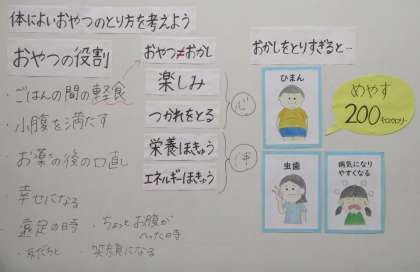 体によいおやつのとり方を考えよう
おやつの役割
・ごはんの間の軽食
・小腹を満たす
・お薬の後の口直し
・幸せになる
・遠足の時
・ちょっとお腹がへった時
・友だちと
・笑顔になる
おやつ≠おかし
楽しみ
つかれをとる
心
栄養ほきゅう
エネルギーほきゅう
体
おかしをとりすぎると…
ひまん
虫歯
病気になりやすくなる
めやす
200